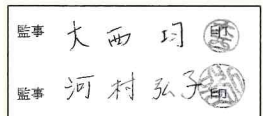 監事 大西 均 印
監事 河村弘子 印